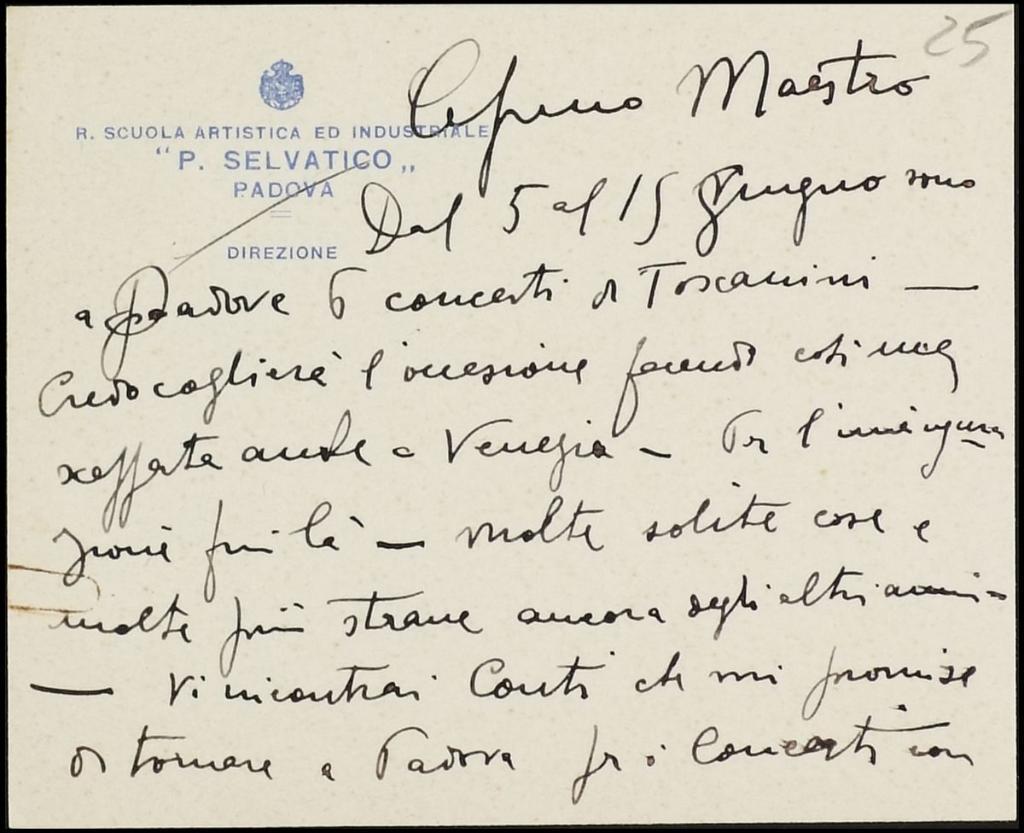 25
R. SCUOLA ARTISTICA ED INDUSTRIALE
"P. SELVATICO„
PADOVA
DIREZIONE
Maestro
Dal 5 al 15 giugno sono
a Padova 6 concerti di Toscanini —
Credo coglierà l'occasione facendo così una
anche a Venezia — Per l'inaugura
zione fui là — molte solite cose e
molte più strane ancora degli altri anni —
— Vi incontrai Conti che mi promise
di tornare a Padova per i Concerti con